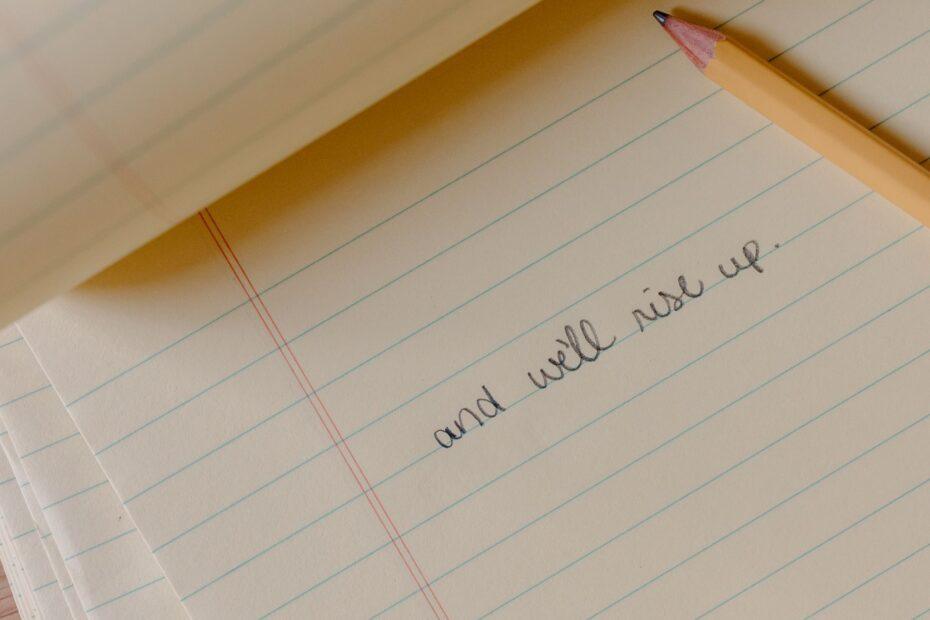 and we'll rise up.